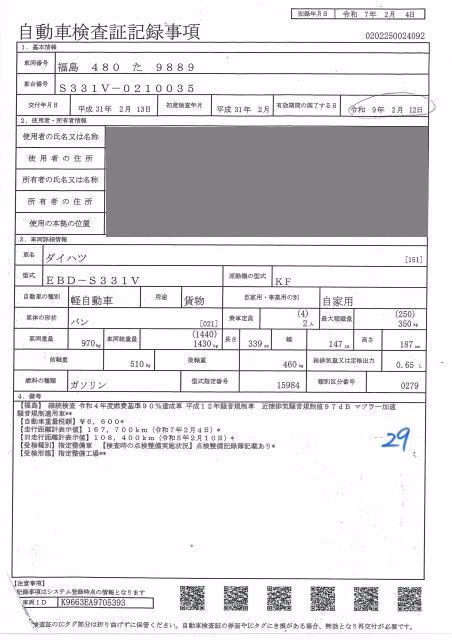 記録年月日 令和 7年 2月 4日
自動車検査証記録事項
0202250024092
1. 基本情報
車両番号 福島 480 た 9889
車台番号 S331V-0210035
交付年月日 平成31年 2月 13日 初度検査年月 平成31年 2月 有効期間の満了する日 令和 9年 2月 12日
2. 使用者・所有者情報
使用者の氏名又は名称
使用者の住所
所有者の氏名又は名称
所有者の住所
使用の本拠の位置
3. 車両詳細情報
車名 ダイハツ [151]
型式 EBD-S331V 原動機の型式 KF
自動車の種別 軽自動車 用途 貨物 自家用・事業用の別 自家用
車体の形状 バン [021] 乗車定員 (4) 2人 最大積載量 (250) 350kg
車両重量 970kg 車両総重量 (1440) 1430kg 長さ 339cm 幅 147cm 高さ 187cm
前軸重 510kg 後軸重 460kg 総排気量又は定格出力 0.65 L
燃料の種類 ガソリン 型式指定番号 15984 類別区分番号 0279
4. 備考
【福島】 継続検査 令和4年度燃費基準90%達成車 平成12年騒音規制車 近接排気騒音規制値97dB マフラー加速
騒音規制適用車**
【自動車重量税額】¥6,600*
【走行距離計表示値】167,700km (令和7年2月4日)*
【旧走行距離計表示値】108,400km (令和5年2月10日)*
【受検種別】指定整備車 【検査時の点検整備実施状況】点検整備記録簿記載あり*
【受検形態】指定整備工場**
29
【注意事項】
記録事項はシステム登録時点の情報となります
車両ID K9663EA9705393
検査証のICタグ部分は折り曲げずに保管ください。自動車検査証の券面やICタグにき損がある場合、無効となり再交付が必要です。